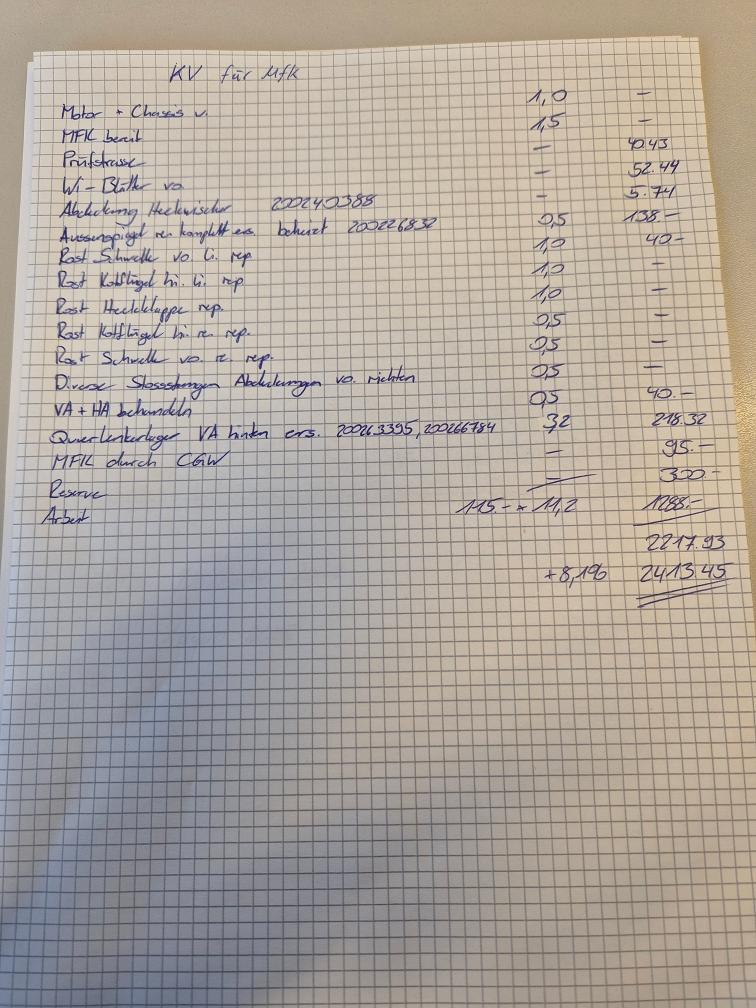 KV für Mfk
Motor + Chassis v. 1,0 –
MFK bereit 1,5 –
Prüfstrasse – 40.43
Wi-Blätter vo – 52.44
Abdeckung Heckwischer 200240388 – 5.74
Aussenspiegel re. komplett ers. beheizt 200226832 0,5 138.–
Rost Schwelle vo. li. rep 1,0 40.–
Rost Kotflügel hi. li. rep 1,0 –
Rost Heckklappe rep. 1,0 –
Rost Kotflügel hi. re. rep. 0,5 –
Rost Schwelle vo. re. rep. 0,5 –
Diverse Abdeckungen vo. richten 0,5 –
VA + HA behandeln 0,5 40.–
Querlenkerlager VA hinten ers. 200263395, 200266784 3,2 218.32
MFK durch CGW – 95.–
Reserve – 300.–
Arbeit 115.– × 11,2 1288.–
2217.93
+8,1% 2413.45